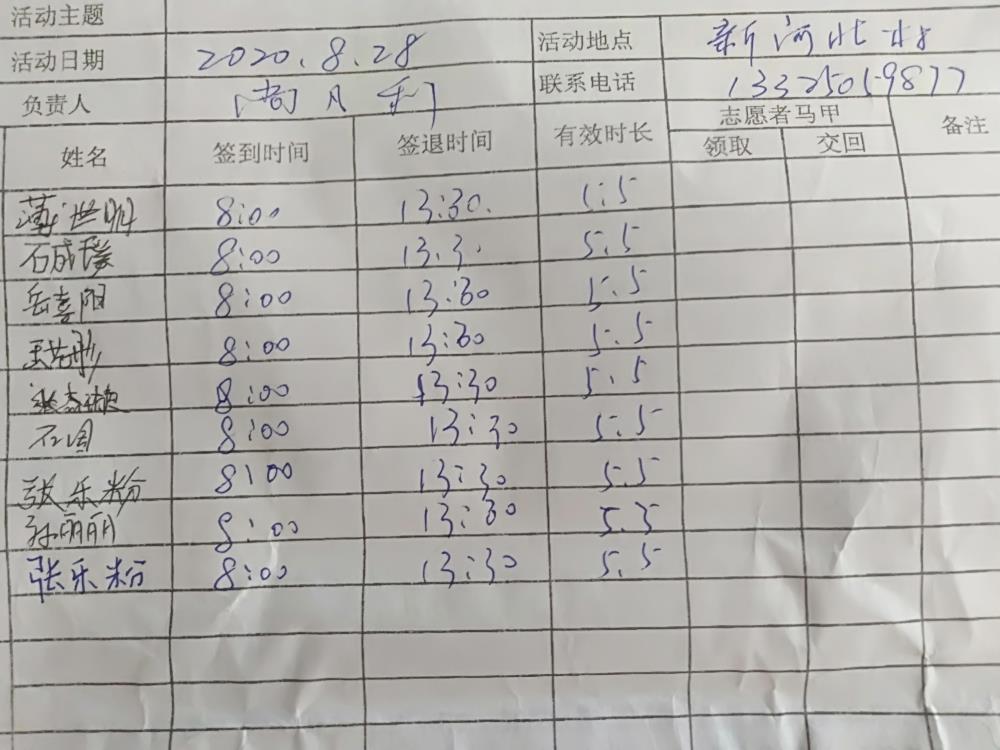 活动主题
活动日期 2020.8.28 活动地点 新河北村
负责人 尚凡利 联系电话 13325059877
姓名 签到时间 签退时间 有效时长 志愿者马甲 备注
领取 交回
薄世明 8:00 13:30. 5.5
石成瑗 8:00 13.3. 5.5
岳喜阳 8:00 13:30 5.5
8:00 13:30 5.5
8:00 13:30 5.5
石国 8:00 13:30 5.5
张乐粉 8:00 13:30 5.5
孙丽丽 8:00 13:30 5.5
张乐粉 8:00 13:30 5.5